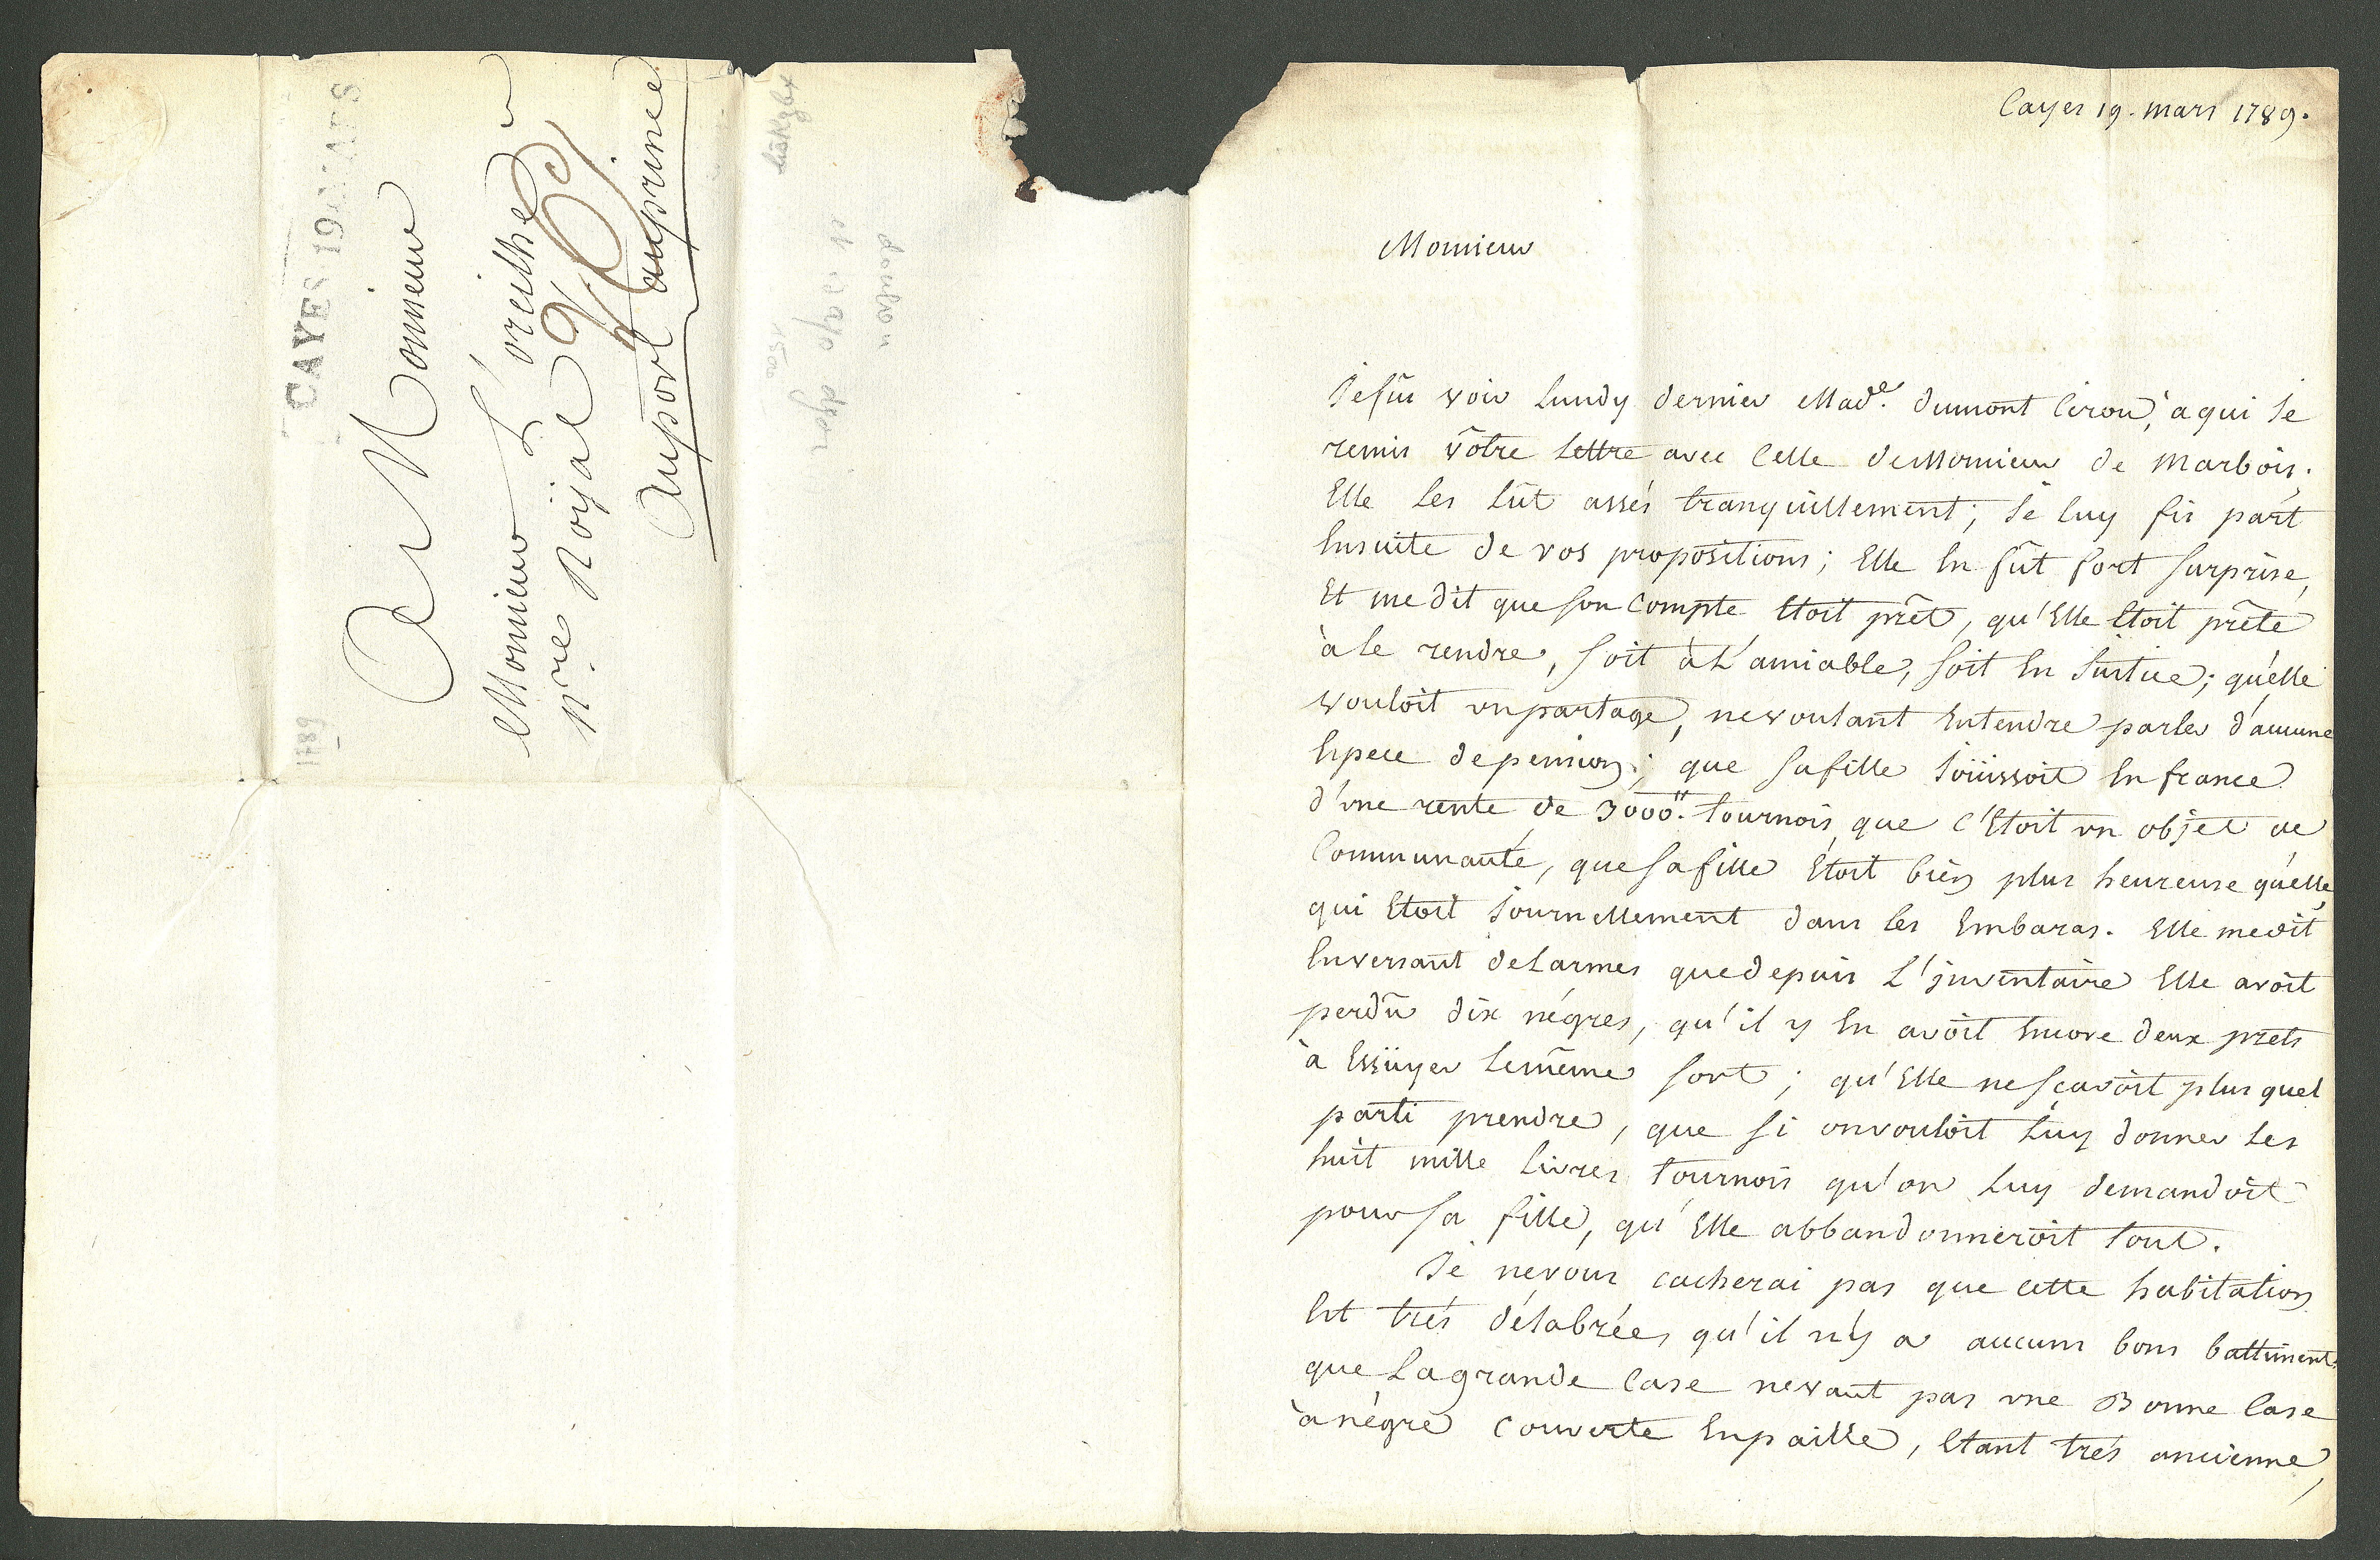 CAYES 19 MARS
A Monsieur
Monsieur L'oreilhe
nre. Royal
Auport auprince
1789
Cayes 19. mars 1789.
Monsieur
Je fus voir Lundy dernier Made. Dumont Cirou, a qui Je
remis vôtre Lettre avec Celle de Monsieur de Marbois.
Elle les lût assés tranquillement; Je luy fis part
Ensuite de vos propositions; Elle En fût fort Surprise,
Et me dit que Son Compte Etoit prêt, qu'Elle Etoit prête
à le rendre, Soit à L'amiable, Soit En Justice; qu'elle
vouloit un partage, ne voulant Entendre parler d'aucune
Espece de pension; que Sa fille Joüissoit En france
d'une rente de 3000.tt tournois, que c'Etoit un objet de
Communauté, que Sa fille Etoit bien plus heureuse qu'elle,
qui Etoit Journellement dans les Embaras. Elle me dit
En versant de Larmes que depuis L'jnventaire Elle avoit
perdû dix négres, qu'il y En avoit Encore deux prêts
à Essüyer Le même Sort; qu'Elle ne Sçavoit plus quel
parti prendre, que Si on vouloit Luy donner Les
huit mille Livres tournois qu'on Luy demandoit
pour Sa fille, qu'Elle abbandonneroit tout.
Je ne vous cacherai pas que cette habitation
Est trés délabrée, qu'il n'y a aucuns bons battiments,
que La grande Case ne vaut pas une Bonne Case
à négre Couverte En paille, Etant trés ancienne,